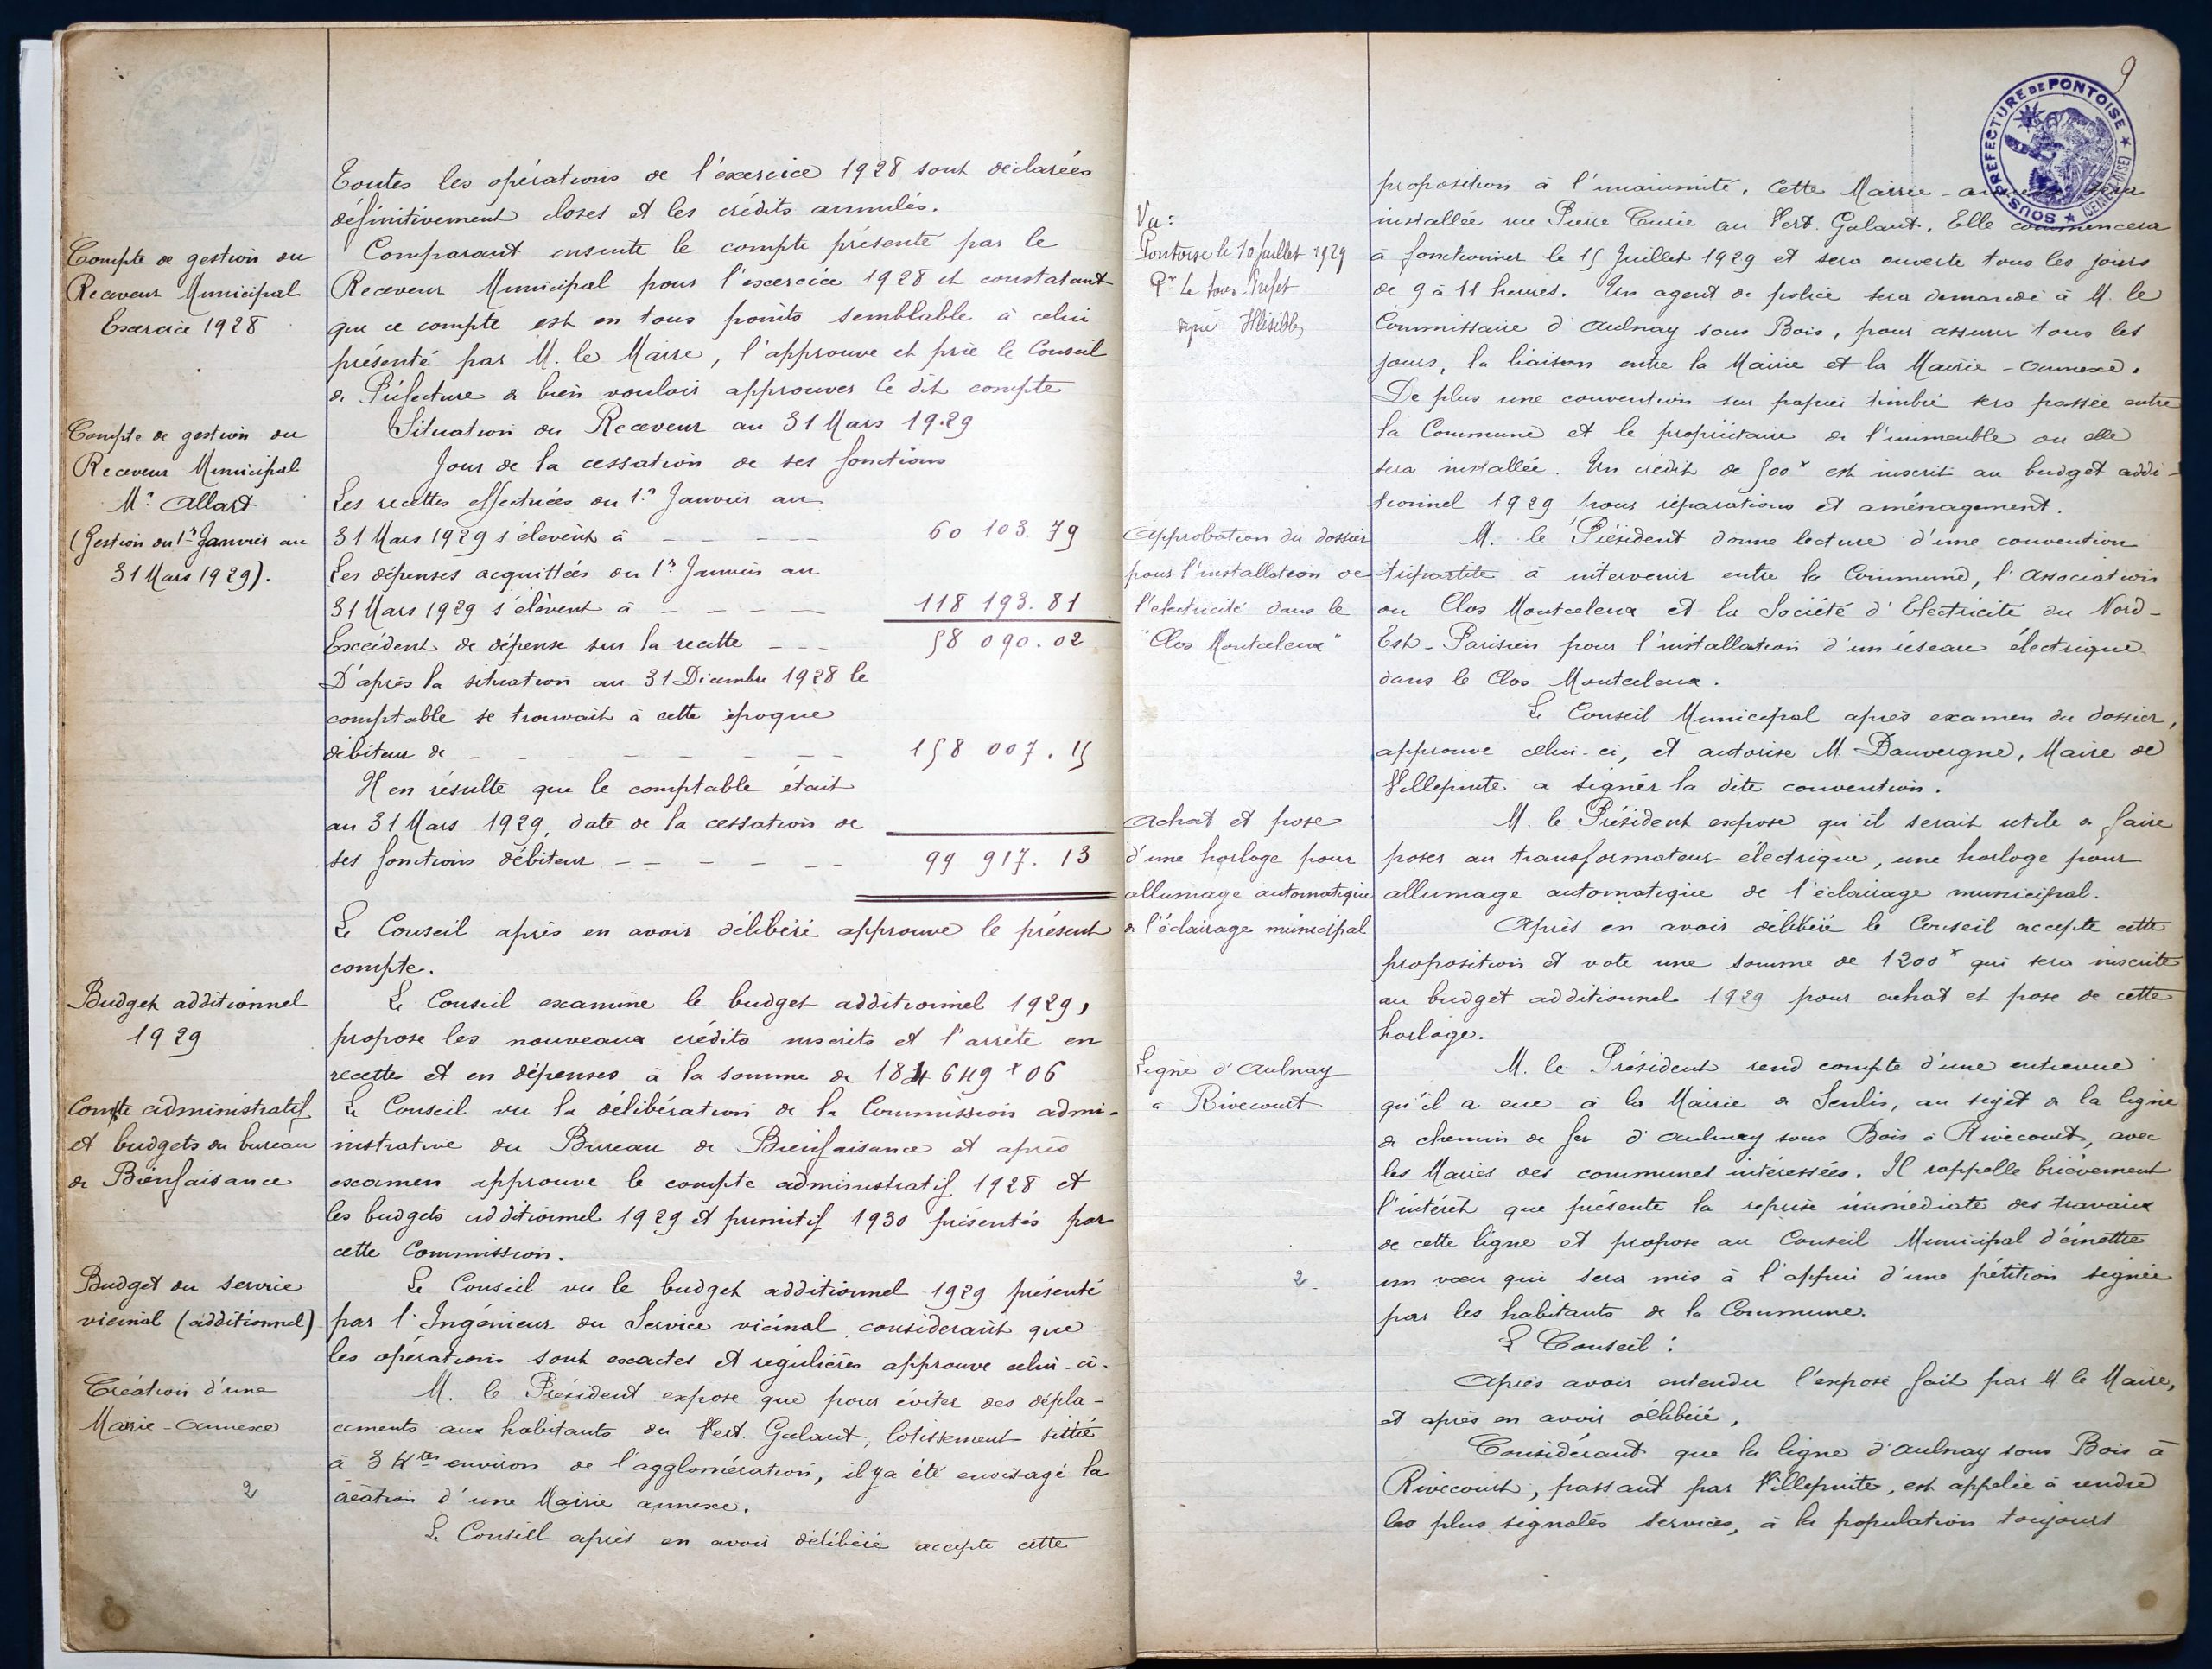 Toutes les opérations de l'exercice 1928 sont déclarées
définitivement closes et les crédits annulés.
Compte de gestion du
Receveur Municipal
Exercice 1928
Comparant ensuite le compte présenté par le
Receveur Municipal pour l'exercice 1928 et constatant
que ce compte est en tous points semblable à celui
présenté par M. le Maire, l'approuve et prie le Conseil
de Préfecture de bien vouloir approuver le dit compte
Compte de gestion du
Receveur Municipal
Mr Allart
(Gestion du 1er Janvier au
31 Mars 1929).
Situation du Receveur au 31 Mars 1929
Jour de la cessation de ses fonctions
Les recettes effectuées du 1er Janvier au
31 Mars 1929 s'élèvent à - - - - - 60 103.79
Les dépenses acquittées du 1er Janvier au
31 Mars 1929 s'élèvent à - - - - 118 193.81
Excédent de dépense sur la recette - - - 58 090.02
D'après la situation au 31 Décembre 1928 le
comptable se trouvait à cette époque
débiteur de - - - - - - - - 158 007.15
Il en résulte que le comptable était
au 31 Mars 1929, date de la cessation de
ses fonctions débiteur - - - - - - 99 917.13
Le Conseil après en avoir délibéré approuve le présent
compte.
Budget additionnel
1929
Le Conseil examine le budget additionnel 1929,
propose les nouveaux crédits inscrits et l'arrête en
recettes et en dépenses à la somme de 184 649 f 06
Compte administratif
et budgets du bureau
de Bienfaisance
Le Conseil vu la délibération de la Commission admi-
nistrative du Bureau de Bienfaisance et après
examen approuve le compte administratif 1928 et
les budgets additionnel 1929 et primitif 1930 présentés par
cette Commission.
Budget du service
vicinal (additionnel)
Le Conseil vu le budget additionnel 1929 présenté
par l'Ingénieur du Service vicinal considérant que
les opérations sont exactes et régulières approuve celui-ci.
Création d'une
Mairie-annexe
2
M. le Président expose que pour éviter des dépla-
cements aux habitants du Vert. Galant, lotissement situé
à 3 Kres environ de l'agglomération, il y a été envisagé la
création d'une Mairie annexe.
Le Conseil après en avoir délibéré accepte cette
9
SOUS-PREFECTURE DE PONTOISE
(SEINE-&-OISE)
Vu:
Pontoise le 10 Juillet 1929
Pr Le Sous-Préfet
signé Illisible
proposition à l'unanimité. Cette Mairie-annexe sera
installée rue Pierre Curie au Vert. Galant. Elle commencera
à fonctionner le 15 Juillet 1929 et sera ouverte tous les jours
de 9 à 11 heures. Un agent de police sera demandé à M. le
Commissaire d'Aulnay sous Bois, pour assurer tous les
jours, la liaison entre la Mairie et la Mairie-annexe.
De plus une convention sur papier timbré sera passée entre
la Commune et le propriétaire de l'immeuble ou elle
sera installée. Un crédit de 500 f est inscrit au budget addi-
tionnel 1929 pour réparations et aménagement.
Approbation du dossier
pour l'installation de
l'electricité dans le
"Clos Montceleux"
M. le Président donne lecture d'une convention
tripartite à intervenir entre la Commune, l'Association
du Clos Montceleux et la Société d'Electricité du Nord-
Est-Parisien pour l'installation d'un réseau électrique
dans le Clos Montceleux.
Le Conseil Municipal après examen du dossier,
approuve celui-ci, et autorise M. Dauvergne, Maire de
Villepinte a signer la dite convention.
Achat et pose
d'une horloge pour
allumage automatique
de l'éclairage municipal
M. le Président expose qu'il serait utile de faire
poser au transformateur électrique, une horloge pour
allumage automatique de l'éclairage municipal.
Après en avoir délibéré le Conseil accepte cette
proposition et vote une somme de 1200 f qui sera inscrite
au budget additionnel 1929 pour achat et pose de cette
horloge.
Ligne d'Aulnay
à Rivecourt
2
M. le Président rend compte d'une entrevue
qu'il a eue à la Mairie de Senlis, au sujet de la ligne
de chemin de fer d'Aulnay sous Bois à Rivecourt, avec
les Maires des communes intéressées. Il rappelle brièvement
l'intérêt que présente la reprise immédiate des travaux
de cette ligne et propose au Conseil Municipal d'émettre
un vœu qui sera mis à l'appui d'une pétition signée
par les habitants de la Commune.
Le Conseil:
Après avoir entendu l'exposé fait par M le Maire,
et après en avoir délibéré,
Considérant que la ligne d'Aulnay sous Bois à
Rivecourt, passant par Villepinte, est appelée à rendre
les plus signalés services, à la population toujours